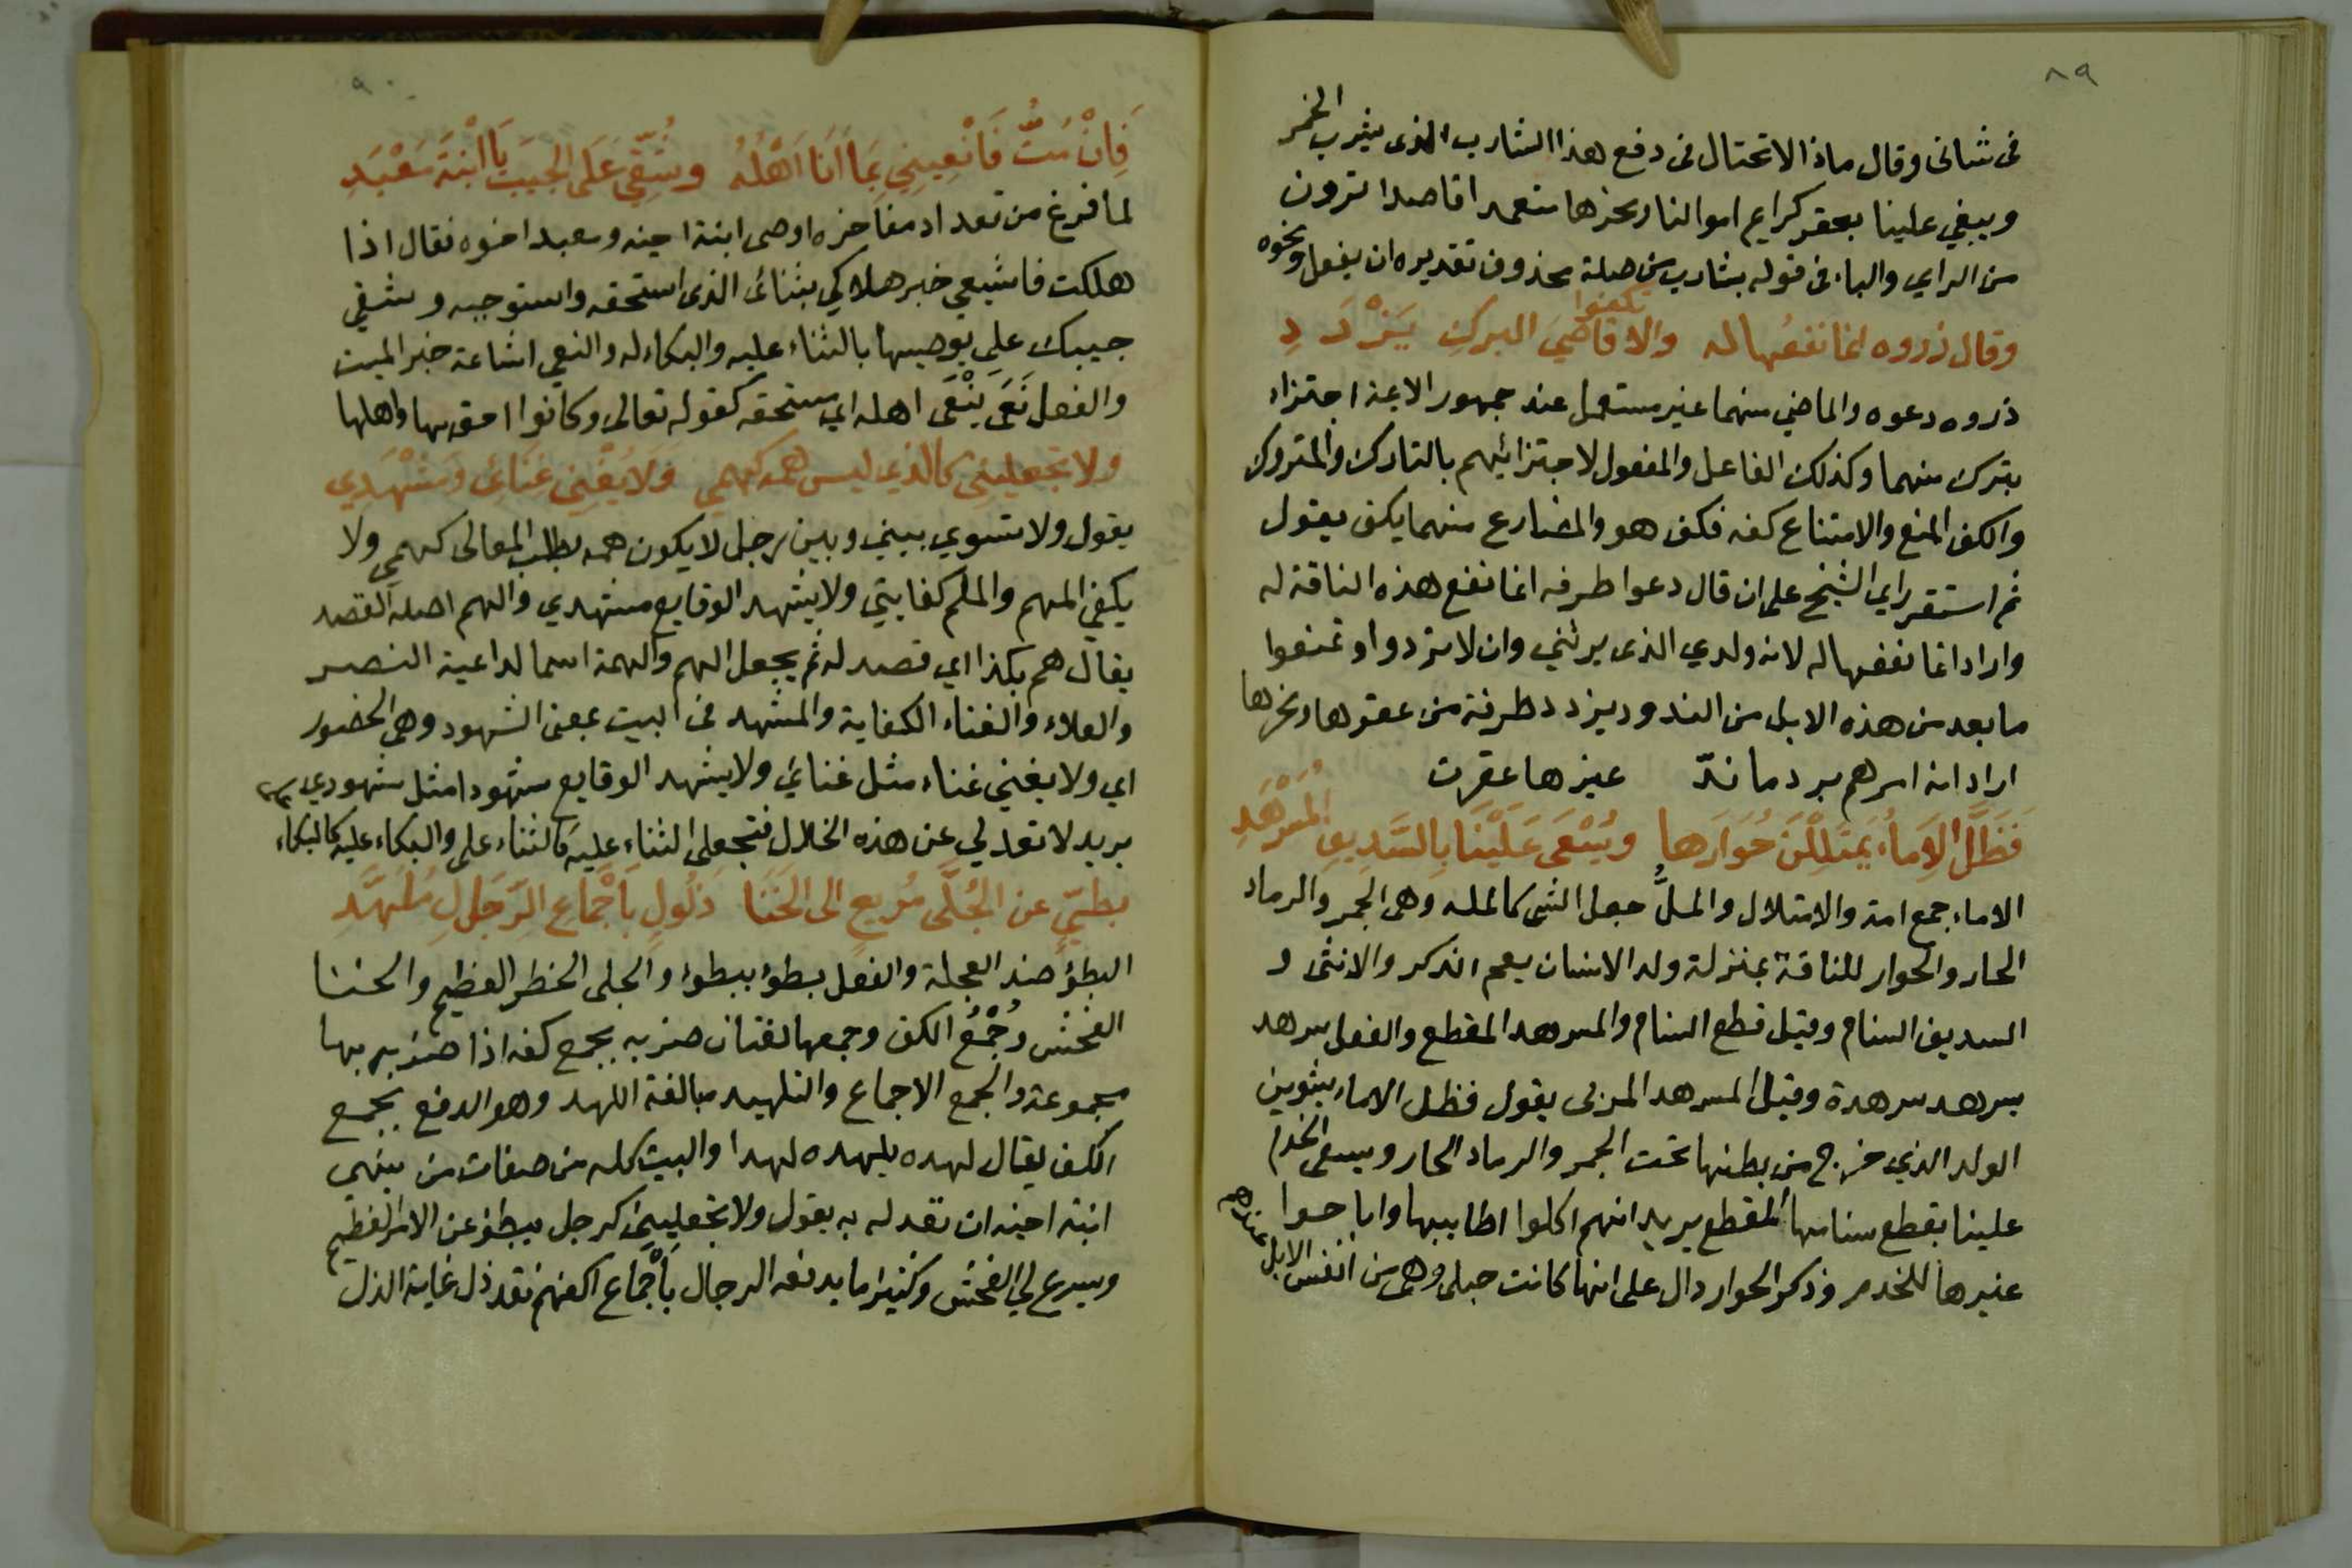 ٨٩
فى شانى وقال ماذا الاحتال فى دفع هذا الشارب الذى يشرب الخمر
ويبغي علينا بعقر كرايم اموالنا ونحرها متعمدا قاصدا ترون
من الراي والباء فى قوله بشارب من صلة محذوف تقديره ان يفعل ونحوه
وقال ذروه انما نفعُها له والا تكفوا قاضيَ البركِ يَزْدَدِ
ذروه دعوه والماضي منهما غير مستعمل عند جمهور الايمة اجتزاء
بترك منهما وكذلك الفاعل والمفعول لاجتزائهم بالتارك والمتروك
والكف المنع والامتناع كفه فكف هو والمضارع منهما يكف يقول
ثم استقر راي الشيخ على ان قال دعوا طرفه انما نفع هذه الناقة له
واراد انما نفعها له لانه ولدي الذى يرثني وان لا تردوا وتمنعوا
ما بعد من هذه الابل من الندود يزدد طرفة من عقرها ونحرها
اراد انه امرهم برد ما ندّ غيرها عقرت
فَظَلَّ الاِمَاُء يَمتَلِلْنَ حُوَارَها ويُسْعَى عَلَيْنَا بِالسَّدِيفِ المُسَرْهَدِ
الاماء جمع امة والامتلال والملُّ جعل الشى كالمله وهى الجمر والرماد
الحار والحوار للناقة بمنزلة ولد الانسان يعم الذكر والانثى و
السديف السنام وقيل قطع السنام والمسرهد المقطع والفعل سرهد
يسرهد سرهدة وقيل المسرهد المربى يقول فظل الاماء يشوين
الولد الذي خرج من بطنها تحت الجمر والرماد الحار ويسعى الخدام
علينا بقطع سنامها المقطع يريد انهم اكلوا اطاييبها واباحوا
غيرها للخدم وذكر الحوار دال على انها كانت حبلى وهى من انفس الابل عندهم
٩٠
فَاِنْ مُتُّ فَانْعِينِي بِمَا اَنَا اَهْلُهُ وشُقِّي عَلَى الجيبَ يَا ابْنَةَ مَعْبَدِ
لما فرغ من تعداد مفاخره اوصى ابنة اخيه ومعبد اخوه فقال اذا
هلكت فاشيعي خبر هلاكي بثنائى الذى استحقه واستوجبه وشقي
جيبك علي يوصيها بالثناء عليه والبكاء له والنعي اشاعة خبر الميت
والفعل نَعَى يَنْعَى اهله اي مستحقه كقوله تعالى وكانوا احق بها واهلها
ولا تجعليني كالذي ليس همه كهمي وَلَا يُغْنِي غَنَائى وَمَشْهَدِي
يقول ولا تسوي بيني وبين رجل لا يكون همه بطلب المعالى كهمي ولا
يكفي المهم والملم كفايتي ولا يشهد الوقايع مشهدي والهم اصله القصد
يقال هم بكذا اي قصد له ثم يجعل الهم والهمة اسما لداعية النصر
والعلاء والغناء الكفاية والمشهد فى البيت بمعنى الشهود وهى الحضور
اي ولا يغني غناء مثل غنائي ولا يشهد الوقايع شهودا مثل شهودي
يريد لا تعدلي عن هذه الخلال فتجعلى الثناء عليه كالثناء على والبكاء عليه كالبكاء
بطيّءٍ عن الجُلَّى سُريعٍ الى الخَنَا ذَلُولٍ بِاَجْمَاع الرِّجَالِ مُلَهَّدِ
البطؤ ضد العجلة والفعل بطؤ يبطوء والجلى الخطر العظيم والخنا
الفحش وجُمْعُ الكف وجمعها لغتان ضربه بجمع كفه اذا ضربه بها
مجموعة والجمع الاجماع والتلهيد مبالغة اللهد وهو الدفع بجمع
الكف يقال لهده يلهده لهدا والبيت كله من صفات من ينهى
ابنة اخيه ان تعدله به يقول ولا تجعليني كرجل يبطؤ عن الامر العظيم
ويسرع لي الفحش وكثيرا ما يدفعه الرجال بِاَجْمَاع اكفهم فقد ذل غاية الذل